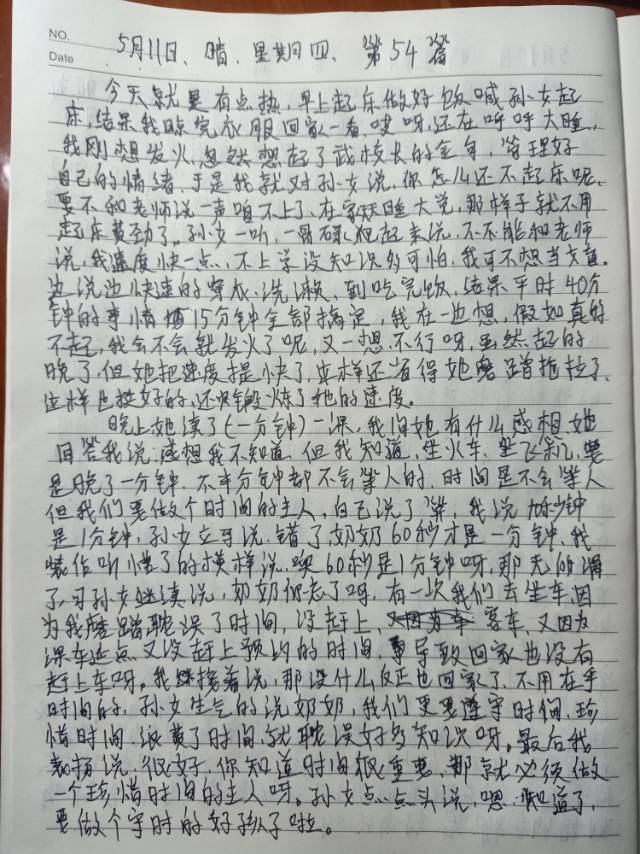 NO.
Date
5月11日、晴、星期四、第54篇
今天就是有点热,早上起床做好饭喊孙女起
床,结果我晾完衣服回家一看,哎呀,还在呼呼大睡,
我刚想发火,忽然想起了武校长的金句,管理好
自己的情绪,于是我就对孙女说,你怎么还不起床呢,
要不和老师说一声咱不上了,在家天天睡大觉,那样子就不用
起床费劲了。孙女一听,一骨碌爬起来说,不,不能和老师
说,我速度快一点,不上学没知识多可怕,我可不想当文盲。
边说边快速的穿衣、洗漱、到吃完饭,结果,平时40分
钟的事情 15分钟全部搞定,我在一边想,假如真的
不起,我会不会就发火了呢,又一想,不行呀,虽然起的
晚了,但她把速度提快了,这样还省得她磨蹭拖拉了,
这样也挺好的,还锻炼了她的速度。
晚上她读了(一分钟)一课,我问她有什么感相,她
回答我说:感想我不知道,但我知道,坐火车、坐飞机,要
是晚了一分钟,不,半分钟都不会等人的,时间是不会等人
但我们要做个时间的主人,自己说了算,我说10秒钟
是1分钟,孙女立马说,错了奶奶60秒才是一分钟,我
装作听懂了的模样说,噢60秒是1分钟呀,那
了,可孙女继续说,奶奶你忘了吗,有一次我们去坐车,因
为我磨蹭耽误了时间,没赶上 客车,又因为
课车迟点,又没赶上预约的时间,导致回家也没有
赶上车呀。我接着说,那没什么反正也回家了,不用在乎
时间的,孙女生气的说奶奶,我们更要遵守时间,珍
惜时间,浪费了时间,就耽误好多知识呀。最后我
表扬说,很好,你知道时间很重要,那就必须做
一个珍惜时间的主人呀。孙女点点头说,嗯,知道了,
要做个守时的好孩子啦。